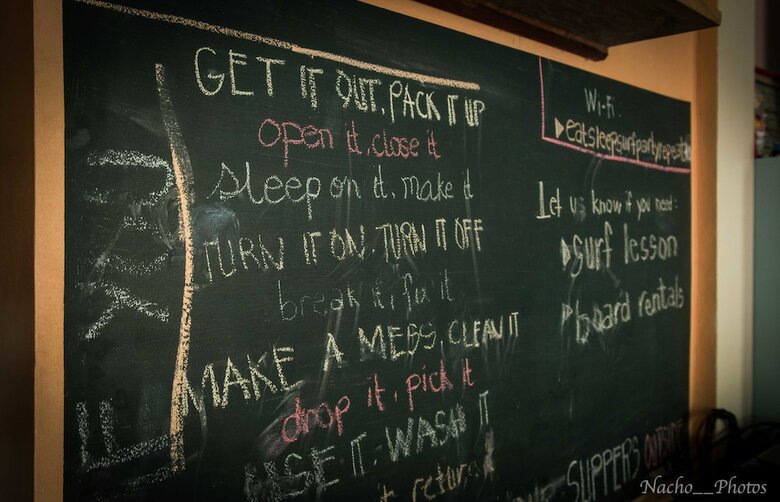 GET IT OUT, PACK IT UP
open it, close it
sleep on it, make it
TURN IT ON, TURN IT OFF
break it, fix it
MAKE A MEBS, CLEAN IT
drop it, pick it
USE IT, WASH IT
it return it
Wi-Fi:
eatsleepsurfpartyrepeat
Let us know if you need:
surf lesson
board rentals
SUPPERS
Nacho__Photos